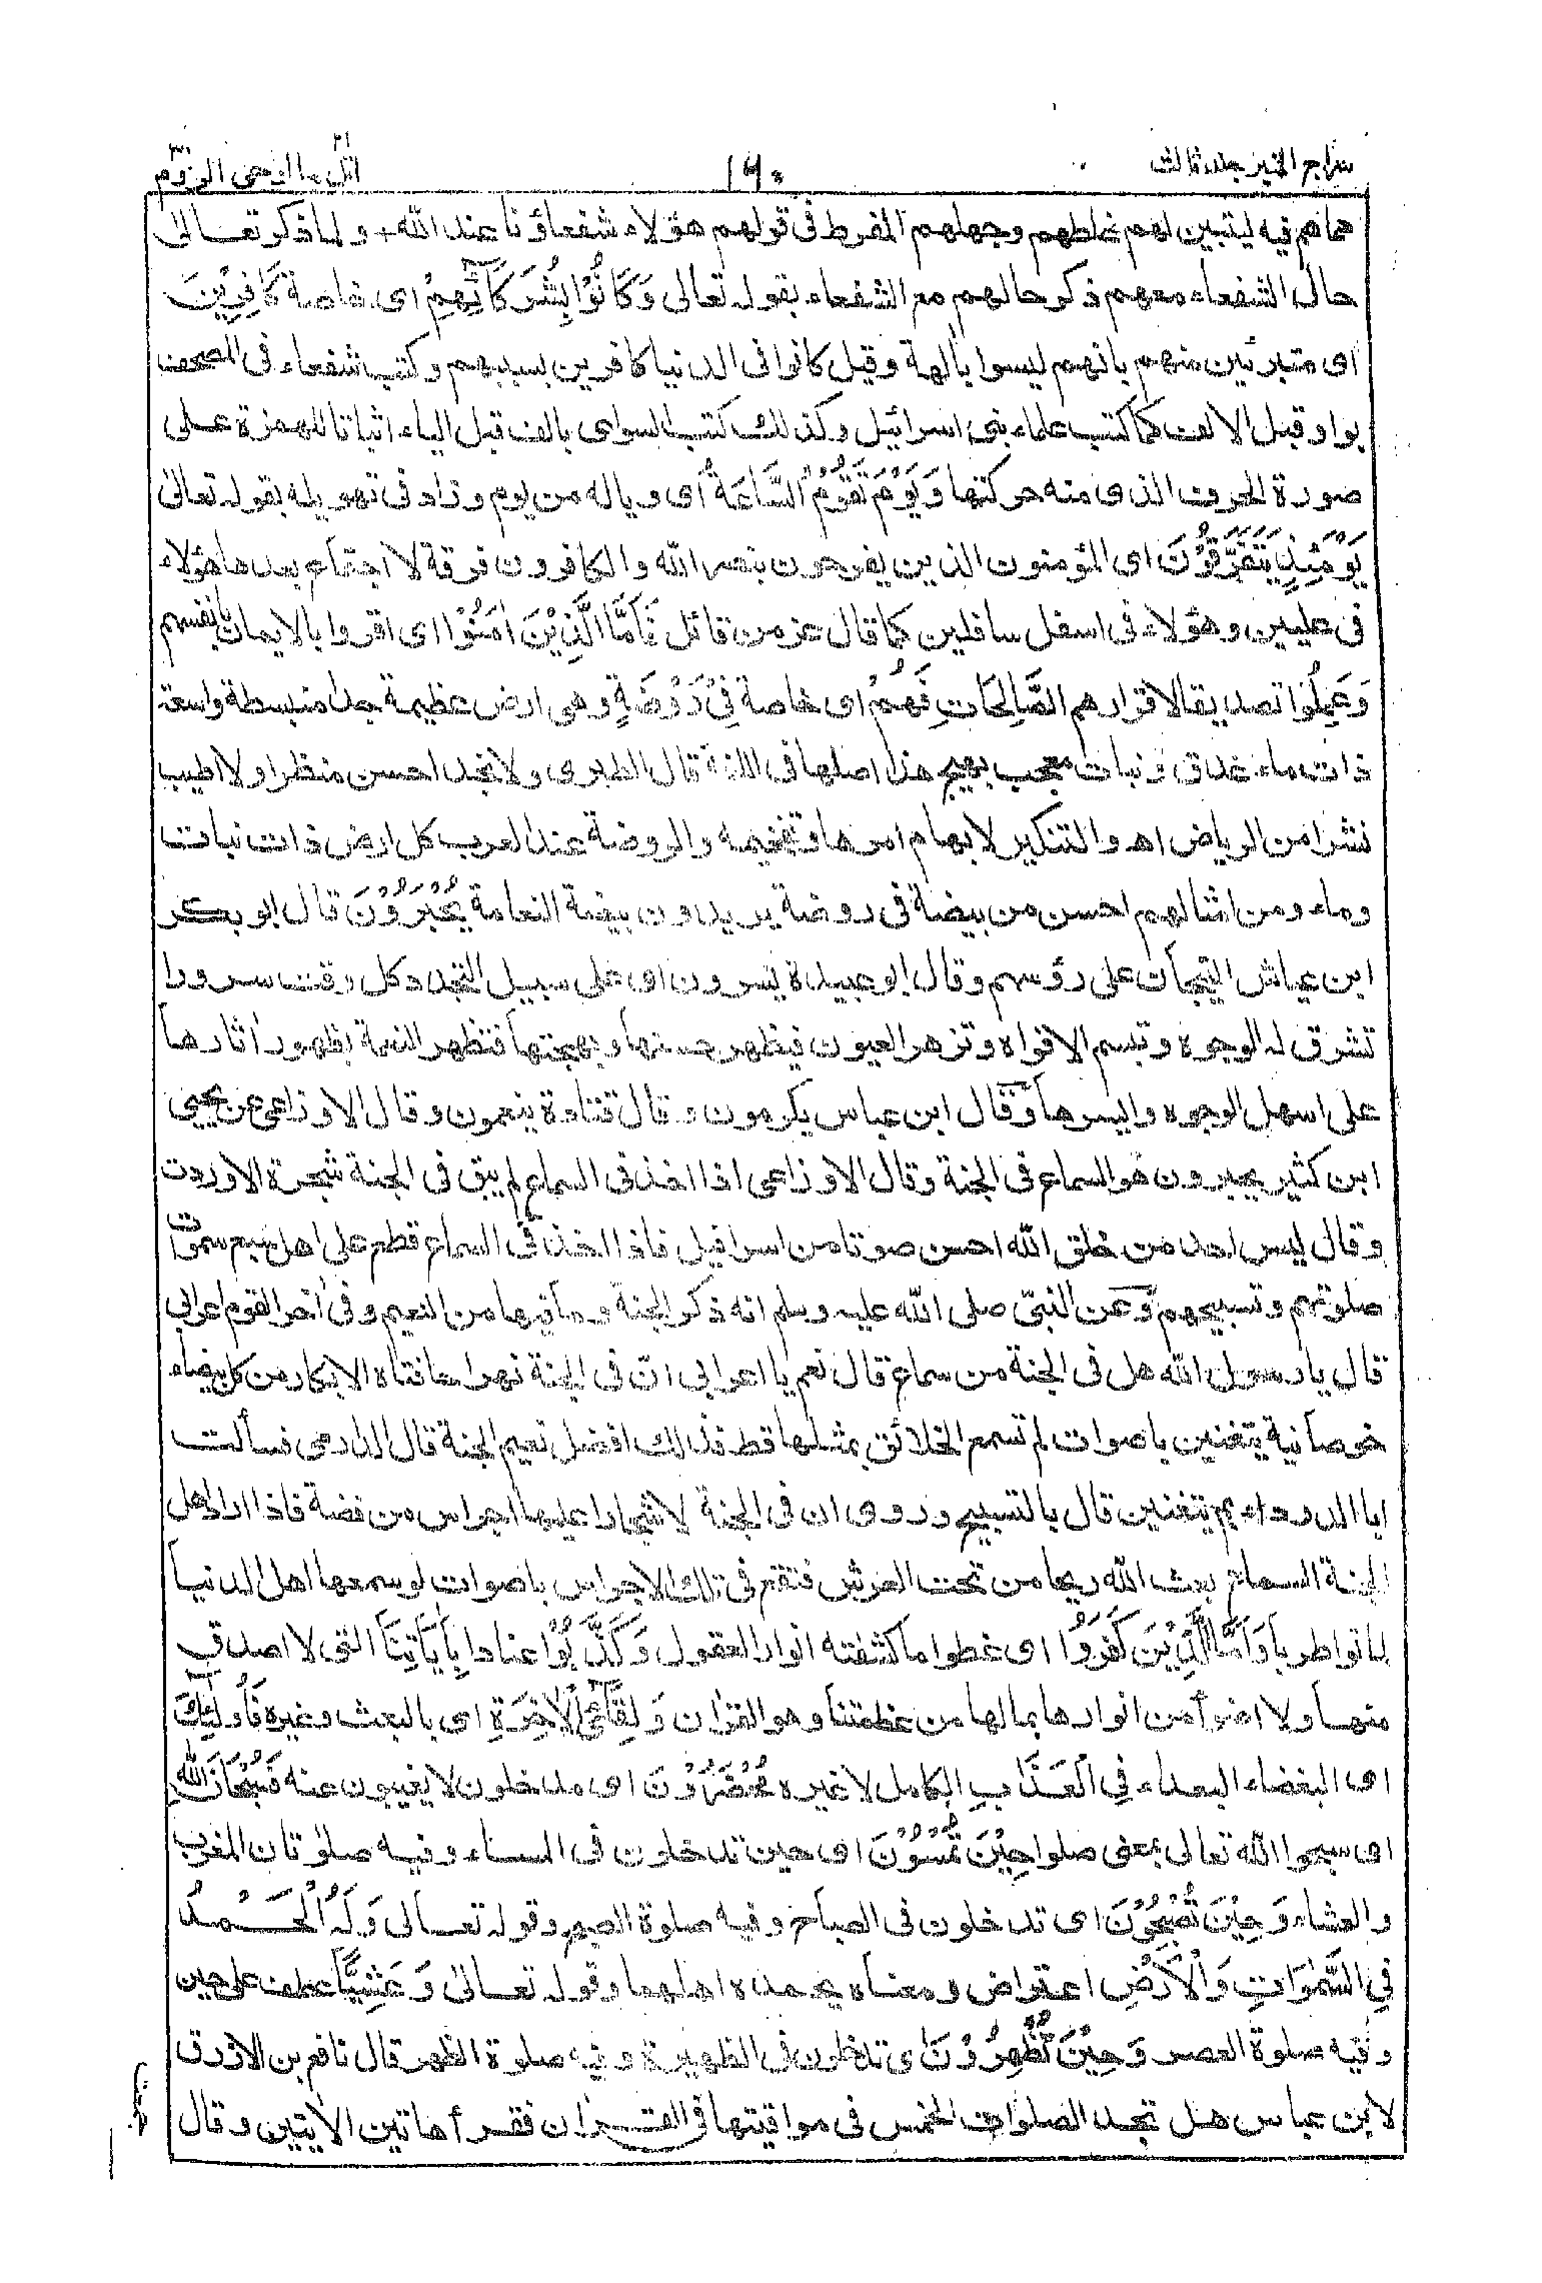 سراج المنیر جلد ثالث
١٦٠
اتل ما اوحی الروم
مماهم فیه لیتبین لهم غلطهم وجهلهم المفرط فی قولهم هؤلاء شفعاؤنا عند الله + ولما ذکر تعالیٰ
حال الشفعاء معهم ذکر حالهم مع الشفعاء بقوله تعالی وَکَانُوْا بِشُرَکَآئِهِمْ ای خاصة کَافِرِیْنَ
ای متبرئین منهم بانهم لیسوا بالهة وقیل کانوا فی الدنیا کافرین بسببهم وکتب شفعاء فی المصحف
بواو قبل الالف کما کتب علماء بنی اسرائیل وکذلك کتب السوای بالف قبل الیاء اثباتا للهمزة علی
صورة الحرف الذی منه حرکتها وَیَوْمَ تَقُوْمُ السَّاعَةُ ای ویاله من یوم وزاد فی تهویله بقوله تعالیٰ
یَوْمَئِذٍ یَتَفَرَّقُوْنَ ای المؤمنون الذین یفرحون بنصر الله والکافرون فرقة لا اجتماع بعدها هؤلاء
فی علیین وهؤلاء فی اسفل سافلین کما قال عز من قائل فَاَمَّا الَّذِیْنَ اٰمَنُوْا ای اقروا بالایمان بانفسهم
وَعَمِلُوْا تصدیقا لاقرارهم الصَّالِحَاتِ فَهُمْ ای خاصة فِیْ رَوْضَةٍ وهی ارض عظیمة جدا منبسطة واسعة
ذات ماء غدق ونبات معجب بهیج هذا اصلها فی اللغة قال الطبری ولا تجد احسن منظرا ولا اطیب
نشرا من الریاض اهـ والتنکیر لابهام امرها وتفخیمه والروضة عند العرب کل ارض ذات نبات
وماء ومن امثالهم احسن من بیضة فی روضة یریدون بیضة النعامة یُحْبَرُوْنَ قال ابو بکر
ابن عیاش التیجان علی رؤسهم وقال ابو عبیدة یسرون ای علی سبیل التجدد کل وقت سرورا
تشرق له الوجوه وتبسم الافواه وتزهر العیون فیظهر حسنها وبهجتها فتظهر النعمة بظهور اثارها
علی اسهل الوجوه وایسرها وقال ابن عباس یکرمون وقال قتادة ینعمون وقال الاوزاعی عن یحیی
ابن کثیر یحبرون هو السماع فی الجنة وقال الاوزاعی اذا اخذ فی السماع لم یبق فی الجنة شجرة الاوردت
وقال لیس احد من خلق الله احسن صوتا من اسرافیل فاذا اخذ فی السماع قطع علی اهل سبع سموات
صلوتهم وتسبیحهم وعن النبیّ صلی الله علیه وسلم انه ذکر الجنة وما فیها من النعیم وفی اٰخر القوم اعرابی
قال یا رسول الله هل فی الجنة من سماع قال نعم یا اعرابی انّ فی الجنة نهرا حافتاه الابکار من کل بیضاء
خوصانیة یتغنین باصوات لم تسمع الخلائق بمثلها قط فذلك افضل نعیم الجنة قال الدارمی فسألت
ابا الدرداء بم یتغنین قال بالتسبیح وروی ان فی الجنة لاشجارا علیها اجراس من فضة فاذا اراد اهل
الجنة السماع بعث الله ریحا من تحت العرش فتقع فی تلك الاجراس باصوات لو سمعها اهل الدنیا
لماتوا طربا وَاَمَّا الَّذِیْنَ کَفَرُوْا ای غطوا ما کشفته انوار العقول وَکَذَّبُوْا عنادا بِاٰیَاتِنَا التی لا اصدق
منها ولا اضوأ من انوارها بمالها من عظمتنا وهو القراٰن وَلِقَآئِ الْاٰخِرَةِ ای بالبعث وغیره فَاُولٰٓئِكَ
ای البغضاء البعداء فِی الْعَذَابِ الکامل لا غیره مُحْضَرُوْنَ ای مدخلون لا یغیبون عنه فَسُبْحَانَ اللهِ
ای سبحوا الله تعالی بمعنی صلوا حِیْنَ تُمْسُوْنَ ای حین تدخلون فی المساء وفیه صلوٰتان المغرب
والعشاء وَحِیْنَ تُصْبِحُوْنَ ای تدخلون فی الصباح وفیه صلوة الصبح وقوله تعالی وَلَهُ الْحَمْدُ
فِی السَّمٰوَاتِ وَالْاَرْضِ اعتراض ومعناه یحمده اهلهما وقوله تعالیٰ وَعَشِیًّا عطف علی حین
وفیه صلوة العصر وَحِیْنَ تُظْهِرُوْنَ ای تدخلون فی الظهیرة وفیه صلوة الظهر قال نافع بن الازرق
لابن عباس هل تجد الصلوات الخمس فی مواقیتها فی القراٰن فقرأ هاتین الاٰیتین وقال